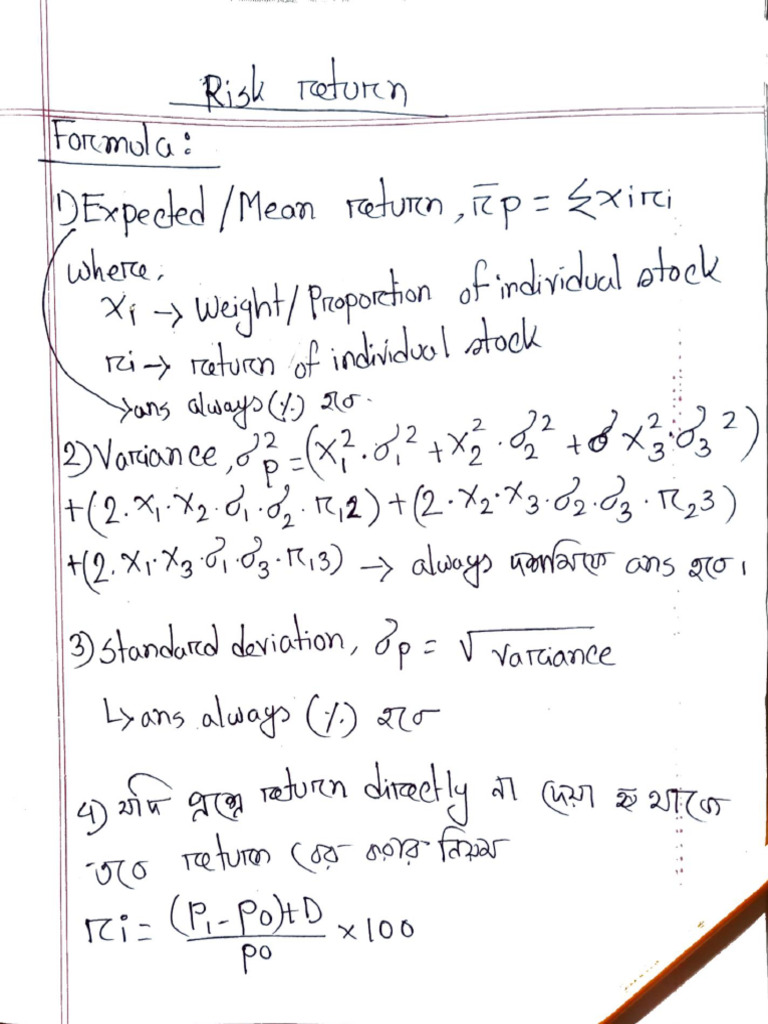 Risk return
Formula:
1) Expected / Mean return, r̄p = Σxiri
where,
xi → Weight / Proportion of individual stock
ri → return of individual stock
→ ans always (%) হবে.
2) Variance, σ²p = (x₁².σ₁² + x₂².σ₂² + x₃².σ₃²)
+ (2.x₁.x₂.σ₁.σ₂.r₁,2) + (2.x₂.x₃.σ₂.σ₃.r₂3)
+ (2.x₁.x₃.σ₁.σ₃.r₁,3) → always দশমিকে ans হবে।
3) Standard deviation, σp = √variance
↳ ans always (%) হবে
4) যদি প্রশ্নে return directly না দেয়া থাকে
তবে return বের করার নিয়ম
ri = (P₁ - P0) + D / P0 × 100